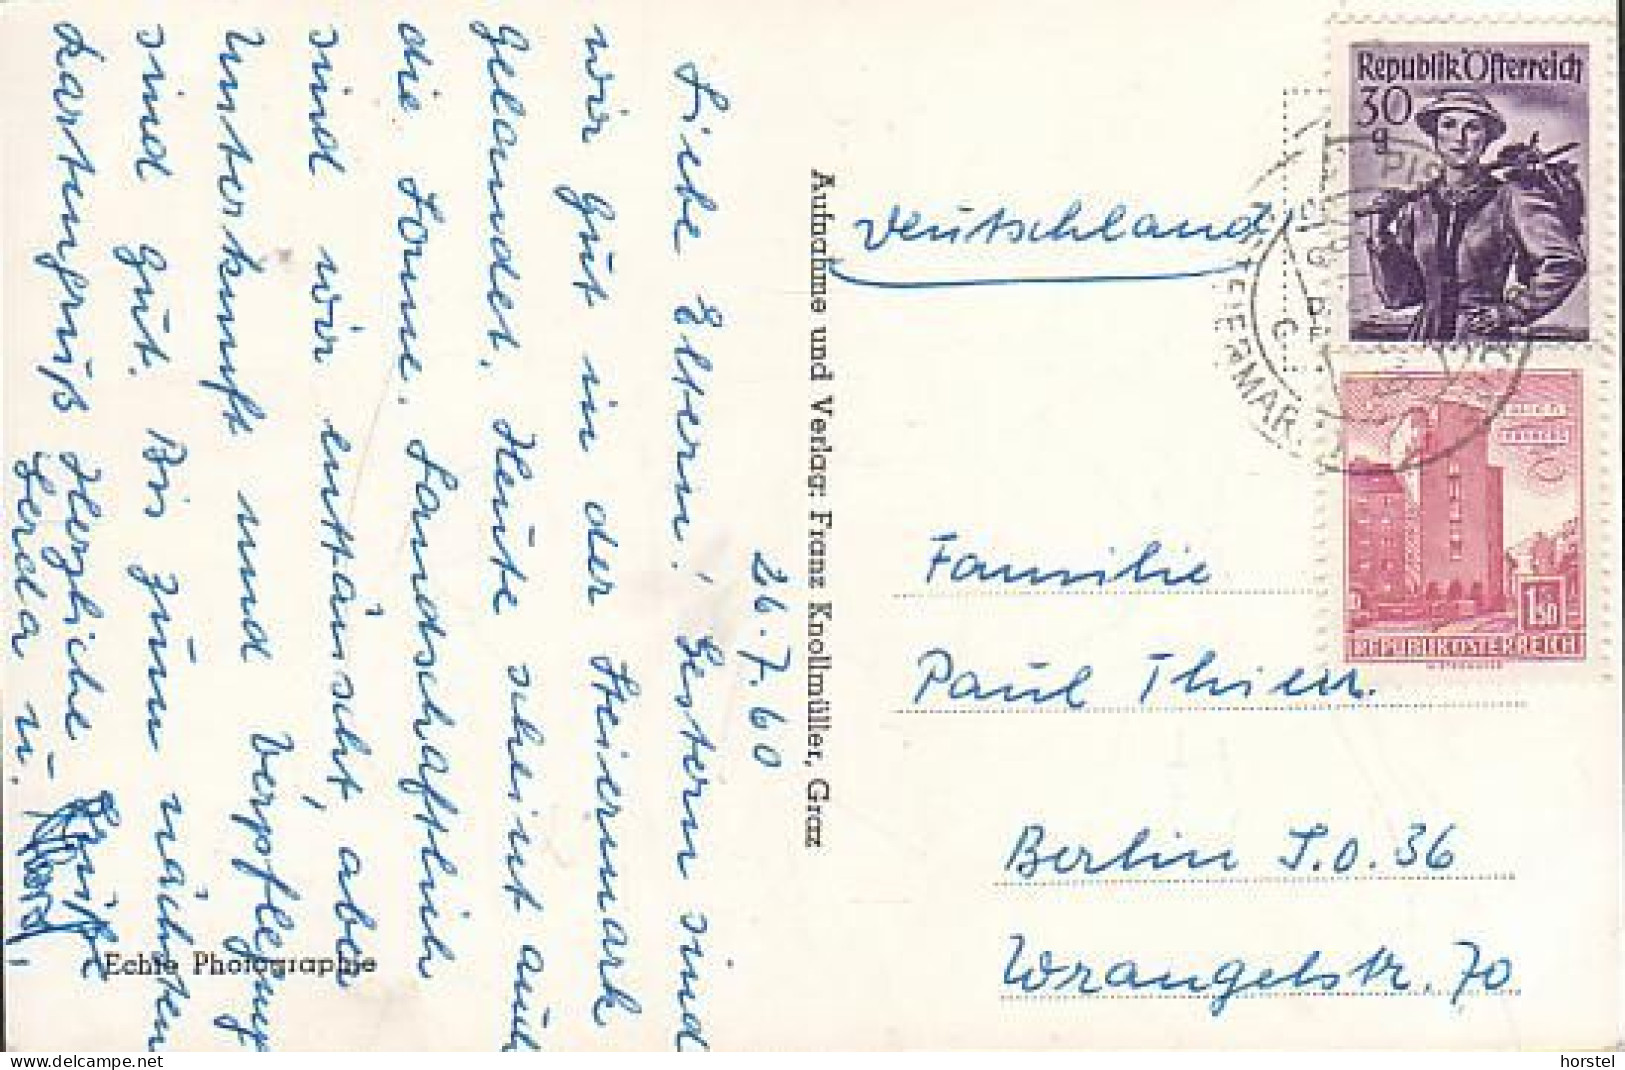 26.7.60
Liebe Eltern! Gestern sind
wir gut in der Steiermark
gelandet. Heute scheint auch
die Sonne. Landschaftlich
sind wir enttäuscht, aber
Unterkunft und Verpflegung
sind gut. Bis zum nächsten
Kartengruß Herzliche Grüße
Gerda u. Horst
Echte Photographie
Aufnahme und Verlag: Franz Knollmüller, Graz
Deutschland
Familie
Paul Thien
Berlin S.O. 36
Wrangelstr. 70
Republik Österreich
30
g
1.50
REPUBLIK ÖSTERREICH
STEIERMARK
horstel